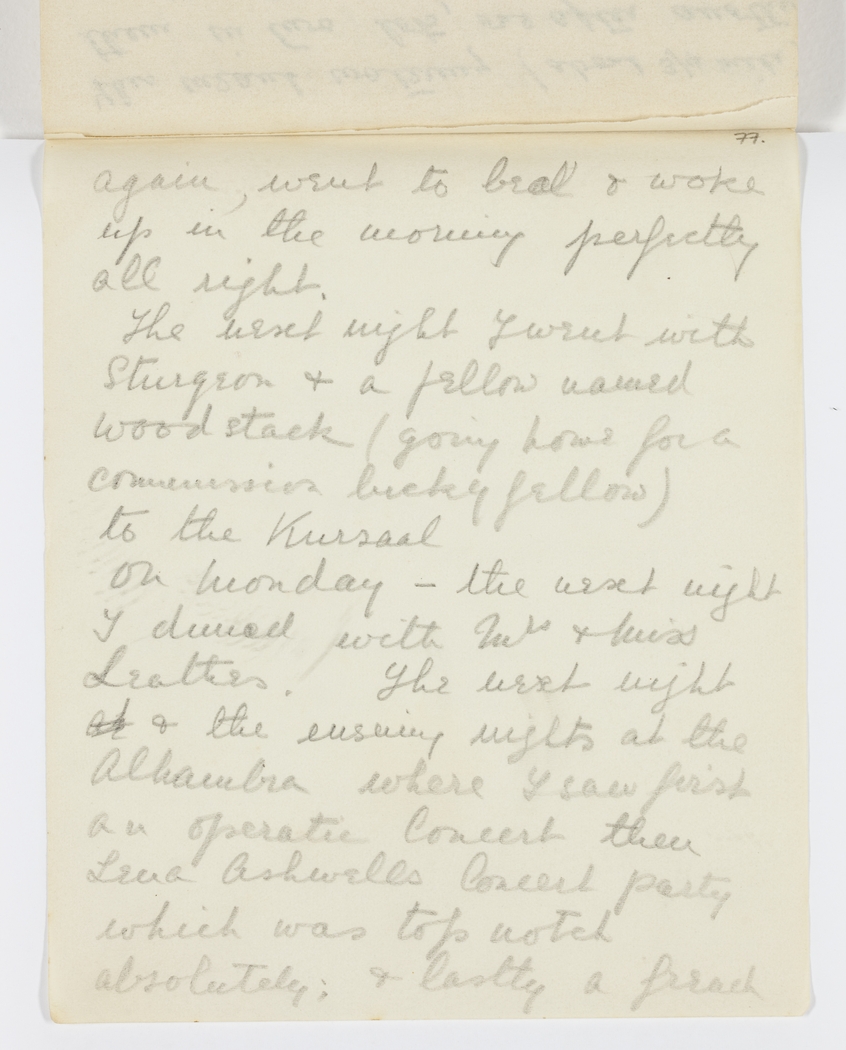 77.
again, went to bed & woke
up in the morning perfectly
all right.
The next night I went with
Sturgeon & a fellow named
Woodstack (going home for a
commission lucky fellow)
to the Kursaal
On Monday - the next night
I dined with Mrs & Miss
Leathes. The next night
at & the ensuing nights at the
Alhambra where I saw first
an operatic Concert then
Lena Ashwells Concert party
which was top notch
absolutely; & lastly a